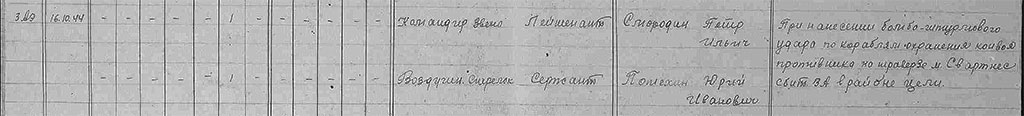 З.А9 16.10.44 - - - - 1 - - - - Командир звена Лейтенант Смородин Петр Ильич
- - - - 1 - - - - Воздушн. Стрелок Сержант Потехин Юрий Иванович
При нанесении бомбо-штурмового
удара по кораблям охранения конвоя
противника на траверзе м. Свартнес
сбит ЗА в районе цели.